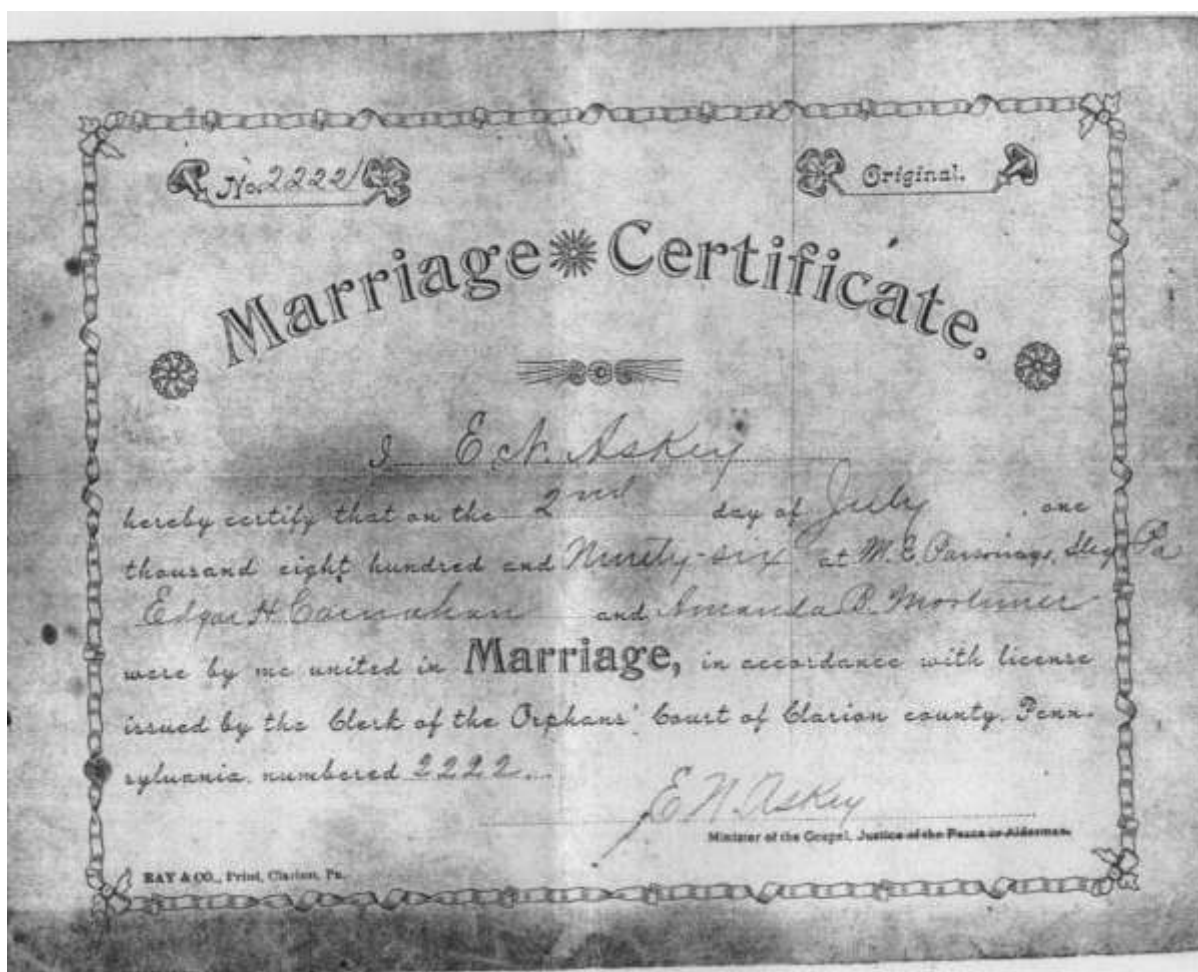 No. 2222
Original.
Marriage Certificate.
I E. N. Askey
hereby certify that on the 2nd day of July, one
thousand eight hundred and Ninety-six at M. E. Parsonage, Pa
Edgar H. Carnahan and Amanda B. Mortimer
were by me united in Marriage, in accordance with license
issued by the Clerk of the Orphans' Court of Clarion county, Penn-
sylvania, numbered 2222...
E. N. Askey
Minister of the Gospel, Justice of the Peace or Alderman.
RAY & CO., Print, Clarion, Pa.